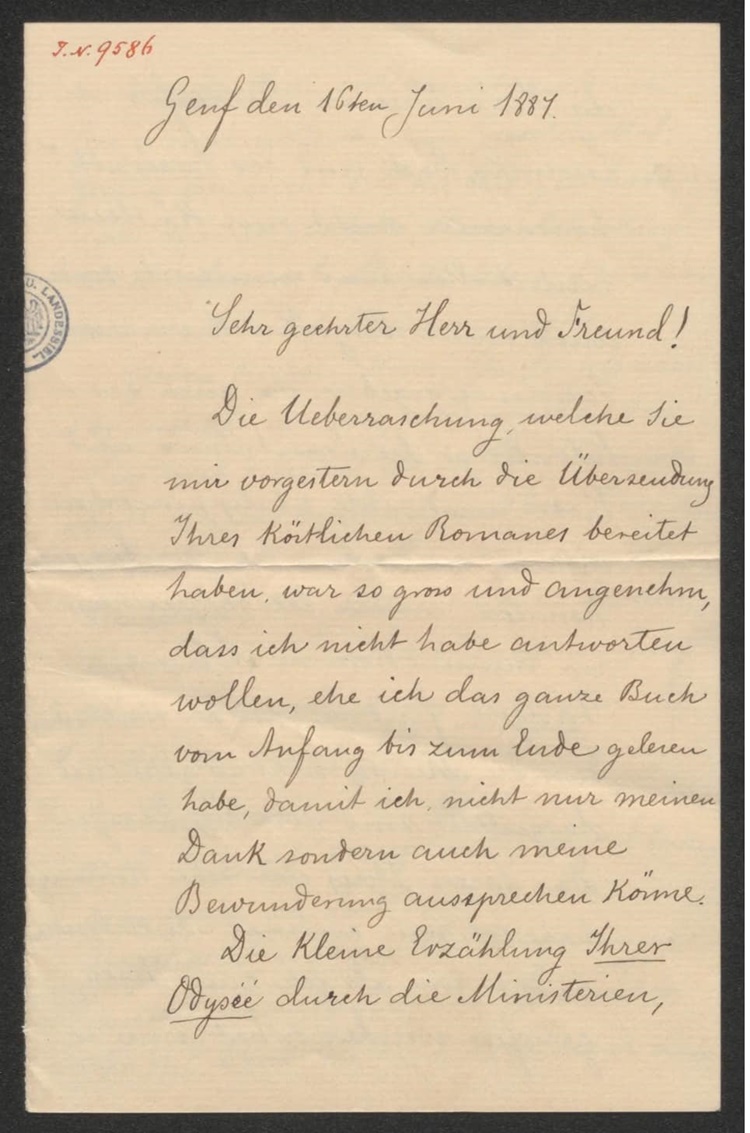 J.N. 9586
Genf den 16ten Juni 1887.
U. LANDESBIBL.
Sehr geehrter Herr und Freund!
Die Ueberraschung, welche Sie
mir vorgestern durch die Übersendung
Ihres köstlichen Romanes bereitet
haben, war so gross und angenehm,
dass ich nicht habe antworten
wollen, ehe ich das ganze Buch
vom Anfang bis zum Ende gelesen
habe, damit ich, nicht nur meinen
Dank sondern auch meine
Bewunderung aussprechen könne.
Die kleine Erzählung Ihrer
Odyséé durch die Ministerien,